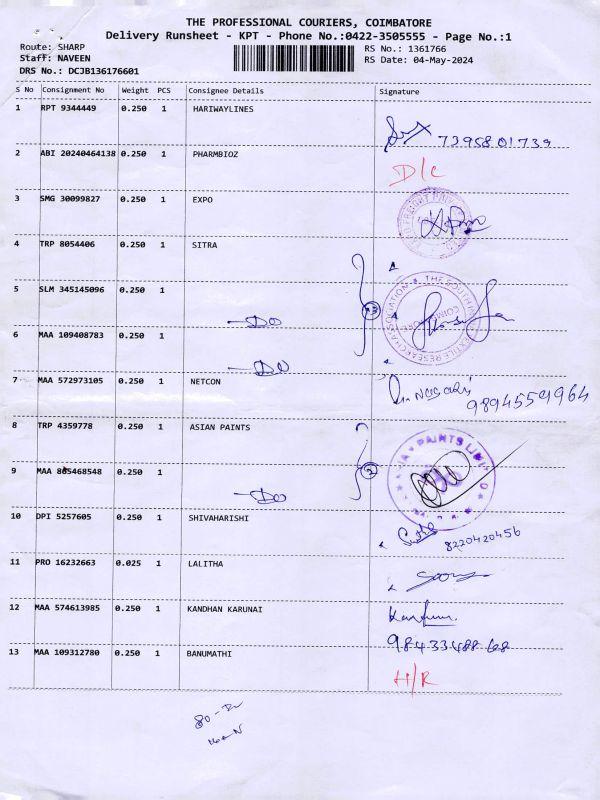 THE PROFESSIONAL COURIERS, COIMBATORE
Delivery Runsheet - KPT - Phone No.:0422-3505555 - Page No.:1
Route: SHARP RS No.: 1361766
Staff: NAVEEN RS Date: 04-May-2024
DRS No.: DCJB136176601
S No Consignment No Weight PCS Consignee Details Signature
1 RPT 9344449 0.250 1 HARIWAYLINES
7395801739
2 ABI 20240464138 0.250 1 PHARMBIOZ
D/C
3 SMG 30099827 0.250 1 EXPO
4 TRP 8054406 0.250 1 SITRA
5 SLM 345145096 0.250 1
DO
6 MAA 109408783 0.250 1
DO
7 MAA 572973105 0.250 1 NETCON
9894559964
8 TRP 4359778 0.250 1 ASIAN PAINTS
PAINTS LIMITED
9 MAA 865468548 0.250 1
2
DO
10 DPI 5257605 0.250 1 SHIVAHARISHI
8220420456
11 PRO 16232663 0.025 1 LALITHA
12 MAA 574613985 0.250 1 KANDHAN KARUNAI
13 MAA 109312780 0.250 1 BANUMATHI
H/R